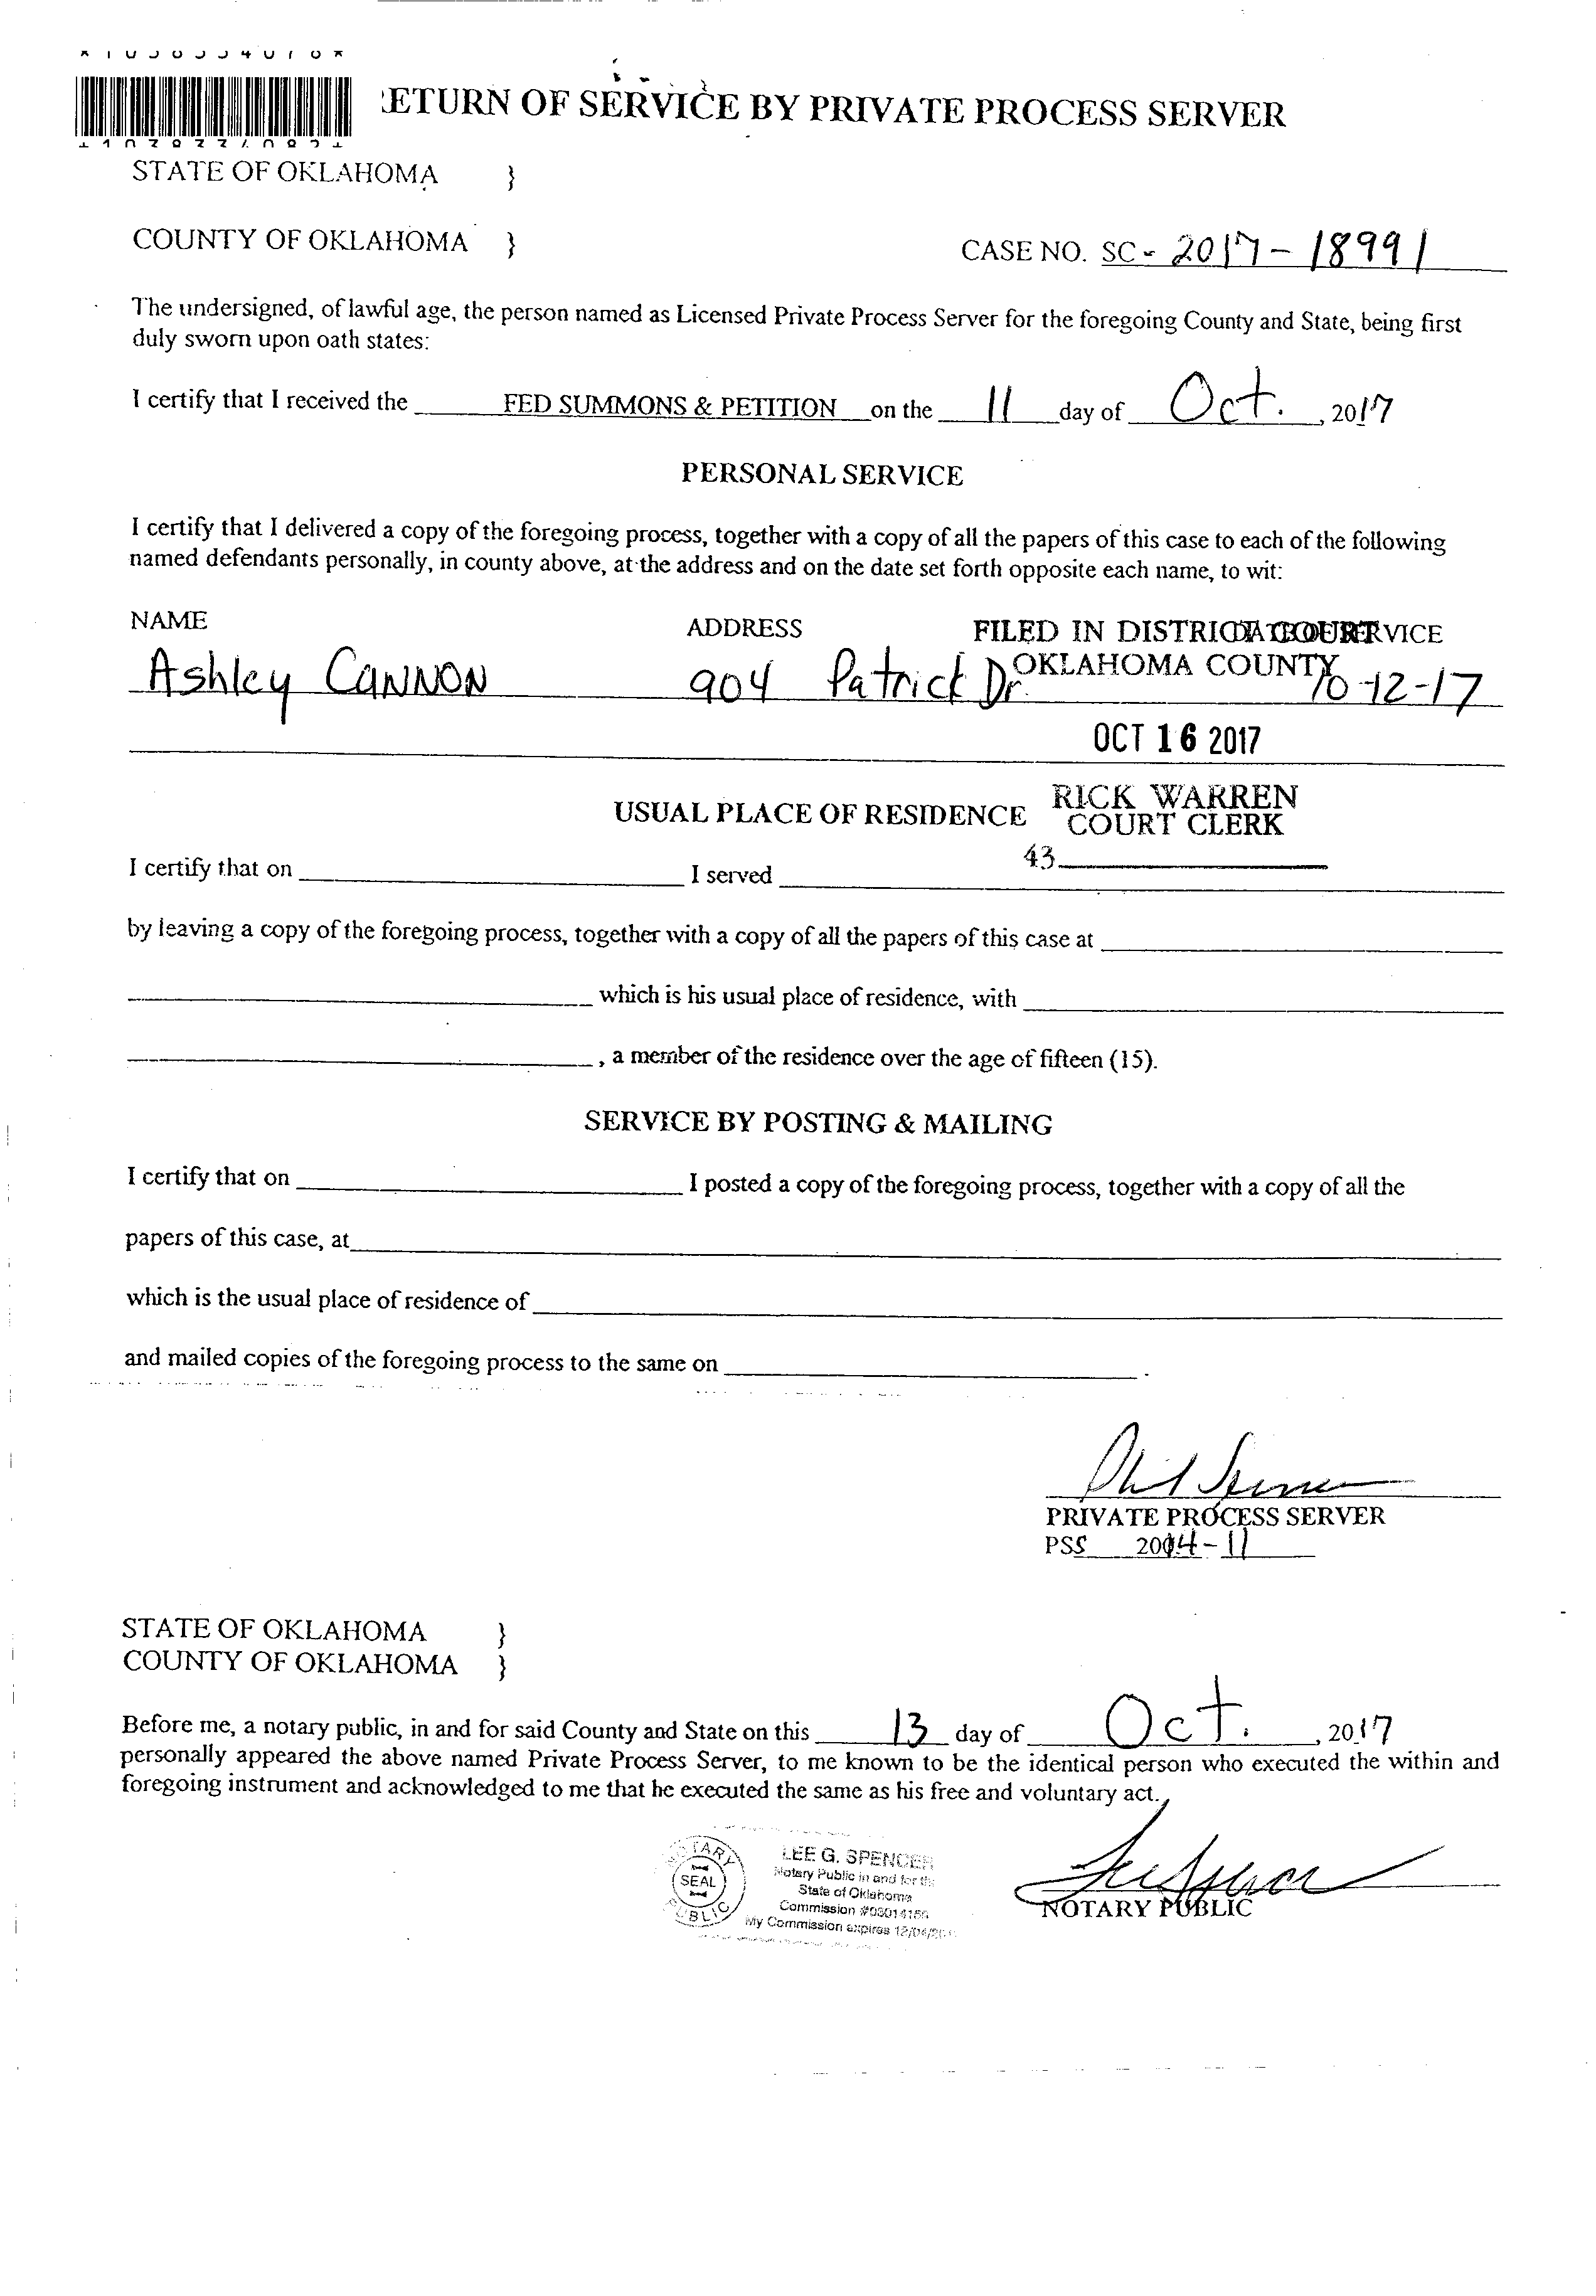 ETURN OF SERVICE BY PRIVATE PROCESS SERVER
STATE OF OKLAHOMA }
COUNTY OF OKLAHOMA }
CASE NO. SC - 2017 - 18991
The undersigned, of lawful age, the person named as Licensed Private Process Server for the foregoing County and State, being first
duly sworn upon oath states:
I certify that I received the FED SUMMONS & PETITION on the 11 day of Oct. , 2017
PERSONAL SERVICE
I certify that I delivered a copy of the foregoing process, together with a copy of all the papers of this case to each of the following
named defendants personally, in county above, at the address and on the date set forth opposite each name, to wit:
NAME ADDRESS
FILED IN DISTRICT COURT
Ashley CANNON 904 Patrick Dr 10-12-17
OKLAHOMA COUNTY
OCT 16 2017
USUAL PLACE OF RESIDENCE
RICK WARREN
COURT CLERK
43
I certify that on I served
by leaving a copy of the foregoing process, together with a copy of all the papers of this case at
which is his usual place of residence, with
, a member of the residence over the age of fifteen (15).
SERVICE BY POSTING & MAILING
I certify that on I posted a copy of the foregoing process, together with a copy of all the
papers of this case, at
which is the usual place of residence of
and mailed copies of the foregoing process to the same on .
PRIVATE PROCESS SERVER
PSS
STATE OF OKLAHOMA }
COUNTY OF OKLAHOMA }
Before me, a notary public, in and for said County and State on this 13 day of Oct. , 2017
personally appeared the above named Private Process Server, to me known to be the identical person who executed the within and
foregoing instrument and acknowledged to me that he executed the same as his free and voluntary act.
NOTARY PUBLIC
SEAL
LEE G. SPENCER
Notary Public in and for the
State of Oklahoma
Commission
My Commission expires
NOTARY PUBLIC